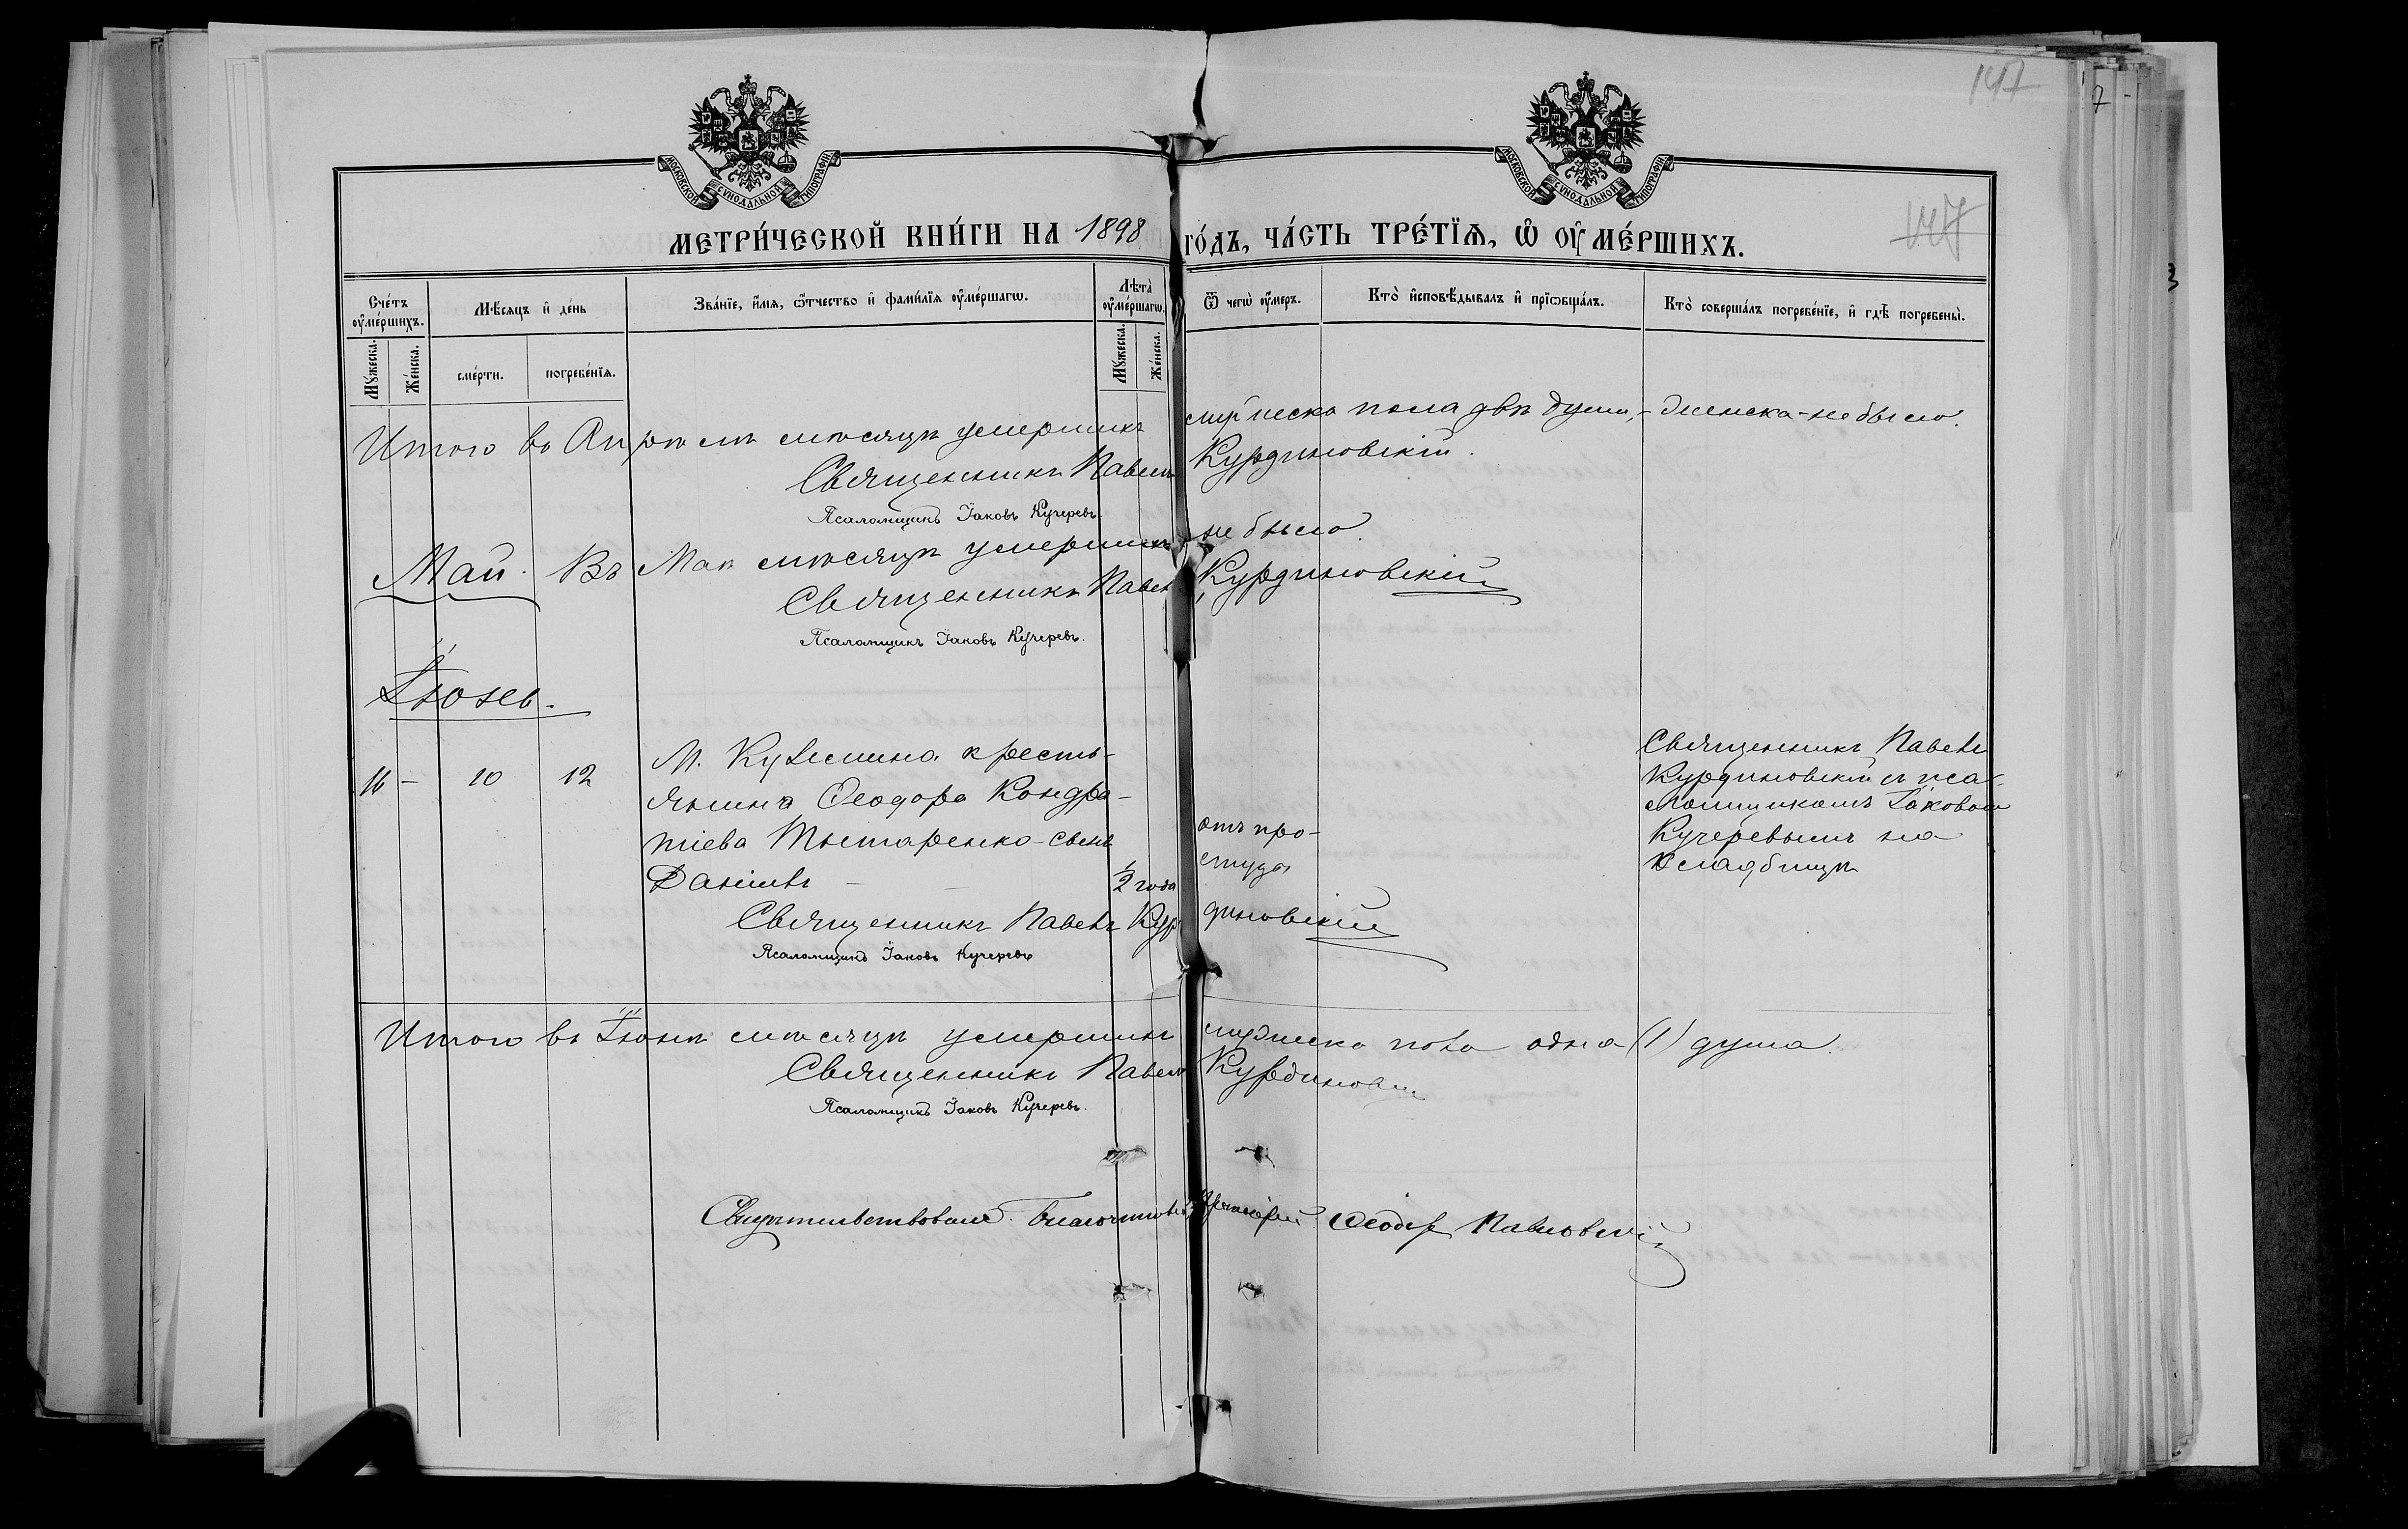 147
7
3
МОСКОВСКОЙ СУНОДАЛЬНОЙ ТИПОГРАФІИ
МОСКОВСКОЙ СУНОДАЛЬНОЙ ТИПОГРАФІИ
147
МЕТРИ́ЧЕСКОЙ КНИ́ГИ НА 1898 ГО́ДЪ, ЧА́СТЬ ТРЕ́ТЇѦ, Ѡ҆ ОУ҆МЕ́РШИХЪ.
Сче́тъ оу҆ме́ршихъ.
Мѣ́сяцъ и҆ де́нь
Зва́нїе, и҆́мя, ѻ҆́тчество и҆ фами́лїя оу҆ме́ршагѡ.
Лѣ́та̀ оу҆ме́ршагѡ.
Ѿ чегѡ̀ оу҆́меръ.
Кто̀ и҆сповѣ́дывалъ и҆ прїѡбща́лъ.
Кто̀ соверша́лъ погребе́нїе, и҆ гдѣ̀ погребены̀.
Мꙋ́жеска.
Же́нска.
сме́рти.
погребе́нїя.
Мꙋ́жеска.
Же́нска.
Итого въ Апрѣлѣ мѣсяцѣ умершихъ мужеска пола двѣ души, - женска - не было.
Священникъ Павелъ Курдиновскій.
Псаломщикъ Іаковъ Кучеревъ.
Май. Въ Маѣ мѣсяцѣ умершихъ не было.
Священникъ Павелъ Курдиновскій
Псаломщикъ Іаковъ Кучеревъ.
Іюнь.
16 - 10 12
М. Куземина кресть-
янина Ѳеодора Кондра-
тіева Тытаренко - сынъ
Даніилъ - -
1/2 года
отъ про-
студы
Священникъ Павелъ
Курдиновскій съ пса-
ломщикомъ Іаковомъ
Кучеревымъ на
кладбищѣ
Священникъ Павелъ Курдиновскій
Псаломщикъ Іаковъ Кучеревъ
Итого въ Іюнѣ мѣсяцѣ умершихъ мужеска пола одна (1) душа.
Священникъ Павелъ Курдиновскій
Псаломщикъ Іаковъ Кучеревъ.
Свидѣтельствовалъ Благочинный Протоіерей Ѳеодоръ Павловскій